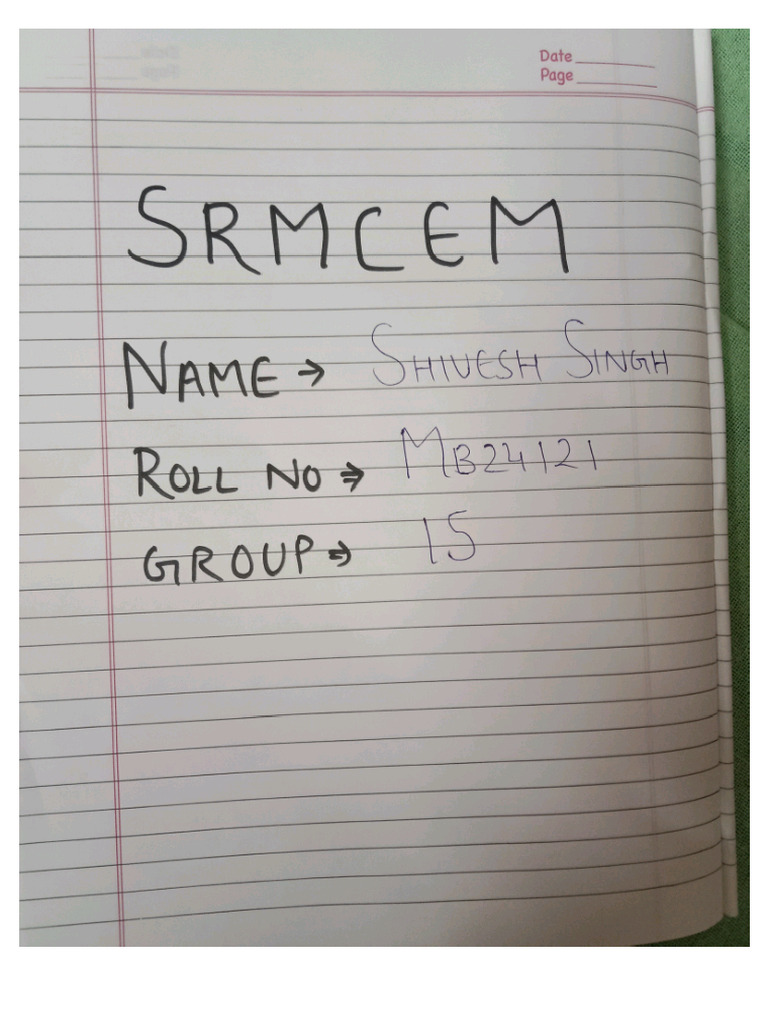 Date
Page
SRMCEM
NAME → SHIVESH SINGH
ROLL NO ⇒ MB24121
GROUP ⇒ 15